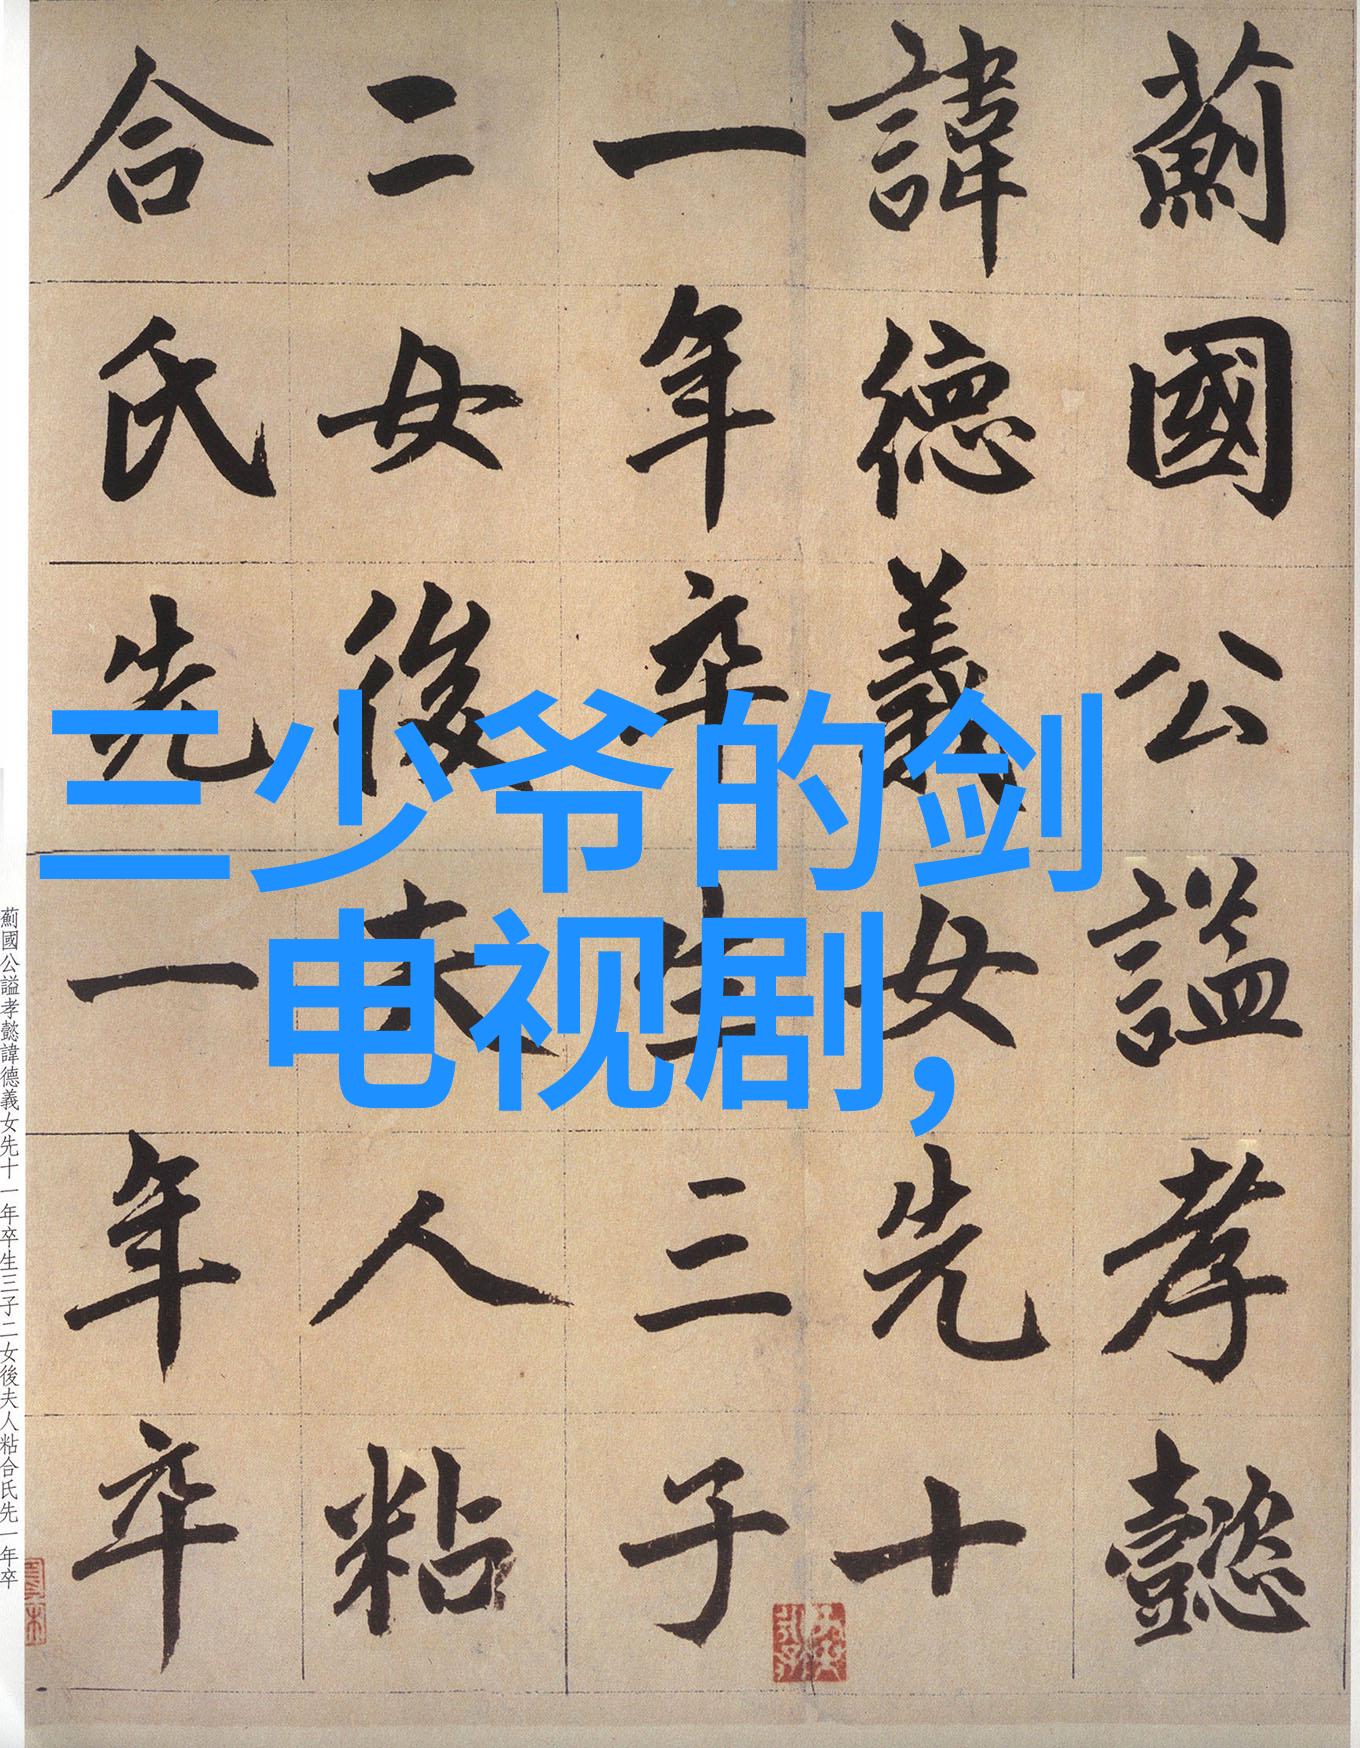 薊國公謚孝懿
諱德義女先十
一年卒生三子
二女後夫人粘
合氏先一年卒
三少爷的剑
电视剧,
薊國公謚孝懿諱德義女先十一年卒生三子二女後夫人粘合氏先一年卒